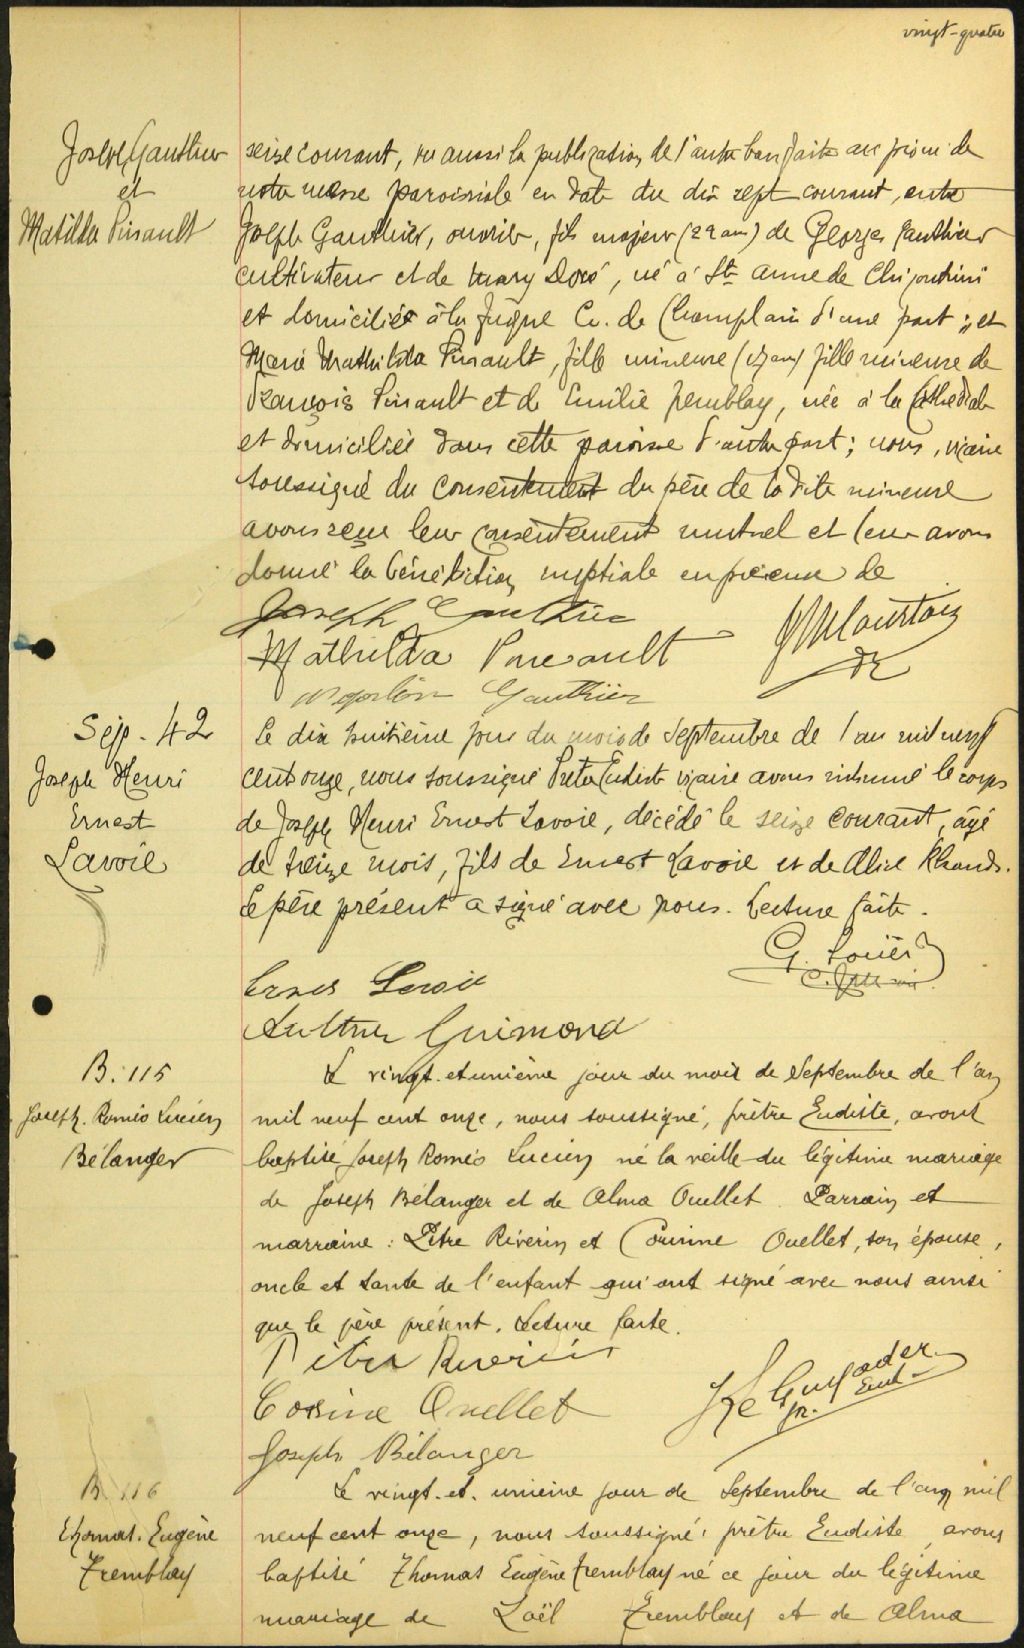 vingt-quatre
Joseph Gauthier
et
Matilda Pinault
seize courant, vu aussi la publication de l'autre ban faite au prône de
notre messe paroissiale en date du dix sept courant, entre
Joseph Gauthier, ouvrier, fils majeur (22 ans) de Georges Gauthier
cultivateur et de Mary Doré, né à Ste Anne de Chicoutimi
et domicilié à la Co. de Champlain d'une part ; et
Marie Mathilda Pinault, fille mineure (17 ans) fille mineure de
François Pinault et de Emilie Tremblay, née à la Cathédrale
et domiciliée dans cette paroisse d'autre part ; nous, vicaire
soussigné du consentement du père de la dite mineure
avons reçu leur consentement mutuel et leur avons
donné la bénédiction nuptiale en présence de
Joseph Gauthier
Mathilda Pineault
Napoléon Gauthier
Sép. 42
Joseph Henri
Ernest
Lavoie
Le dix huitième jour du mois de Septembre de l'an mil neuf
cent onze, nous soussigné Prêtre Eudiste vicaire avons inhumé le corps
de Joseph Henri Ernest Lavoie, décédé le seize courant, âgé
de treize mois, fils de Ernest Lavoie et de Alice
Le père présent a signé avec nous. Lecture faite.
Ernest Lavoie
Arthur Guimond
B. 115
Joseph. Roméo Lucien
Bélanger
Le vingt-et unième jour du mois de Septembre de l'an
mil neuf cent onze, nous soussigné, prêtre Eudiste, avons
baptisé Joseph Roméo Lucien né la veille du légitime mariage
de Joseph Bélanger et de Alma Ouellet. Parrain et
marraine : Pitre Riverin et Corinne Ouellet, son épouse,
oncle et tante de l'enfant qui ont signé avec nous ainsi
que le père présent. Lecture faite.
Pitre Riverin
Corine Ouellet
Joseph Bélanger
B. 116
Thomas. Eugène
Tremblay
Le vingt-et-unième jour de Septembre de l'an mil
neuf cent onze, nous soussigné, prêtre Eudiste avons
baptisé Thomas Eugène Tremblay né ce jour du légitime
mariage de Joël Tremblay et de Alma